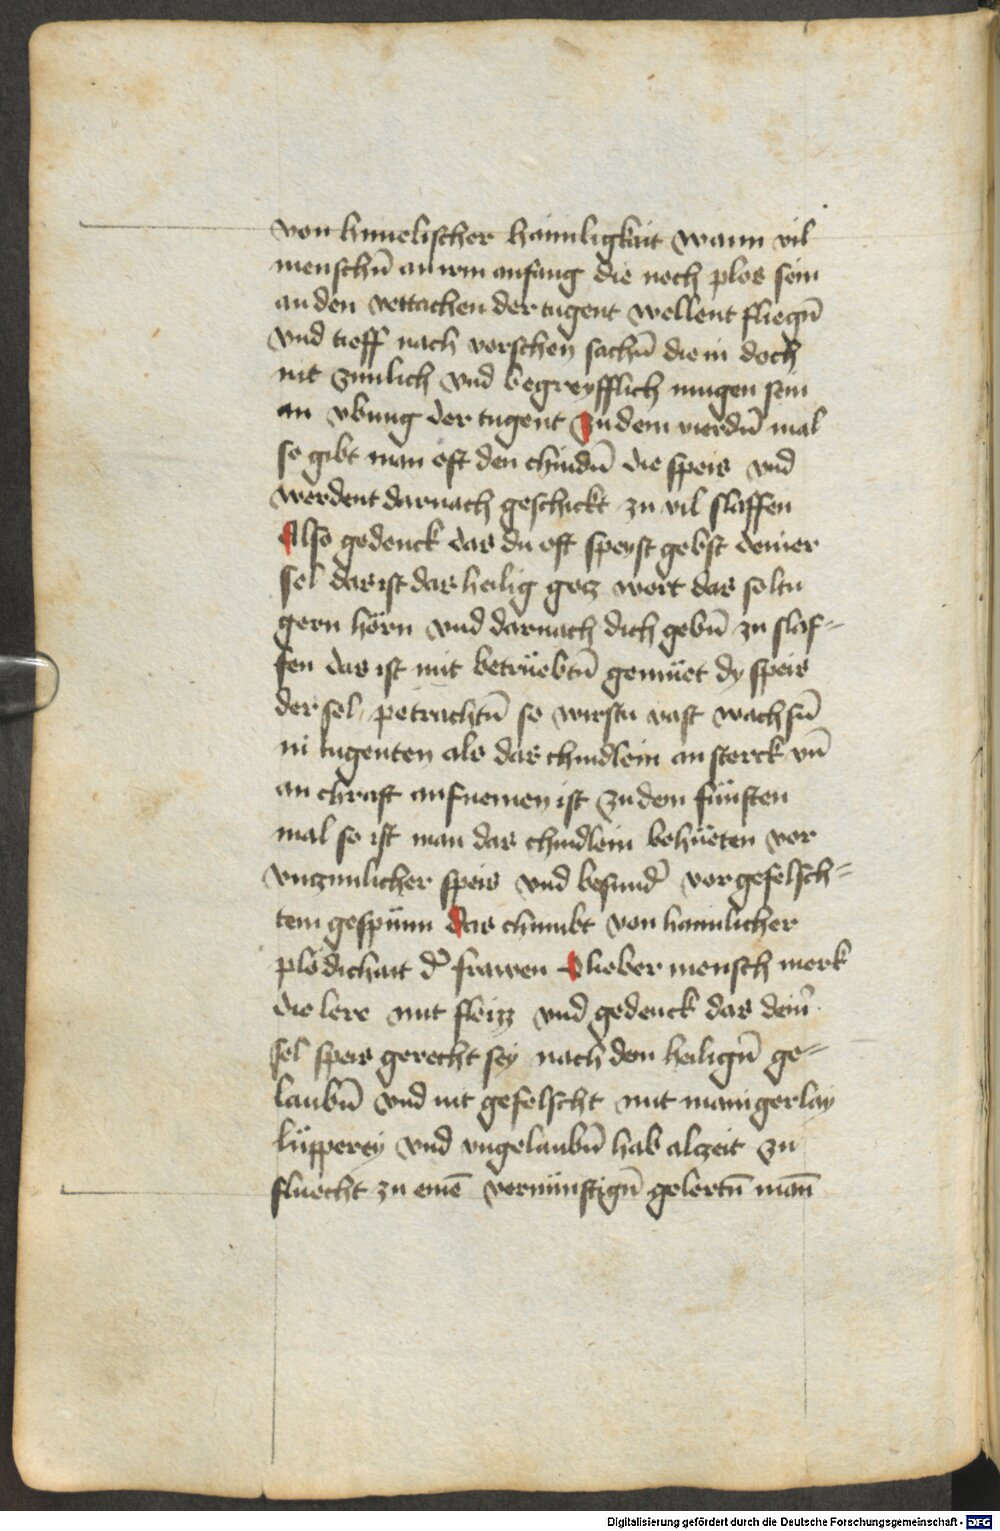 von himelischer haimligkait wann vil
menschn̄ an irm anfang die noch plos sein
an den vettachen der tugent wellent fliegn̄
vnd tieff nach vorschen sachn̄ die in doch
nit sinnlich vnd begreyfflich mugen sein
an vbung der tugent Zu dem vierdn̄ mal
so gibt man oft den chindn̄ die speis vnd
werdent darnach geschickt zu vil slaffen
Also gedenck das du oft speyst gebst deiner
sel das ist das heilig gotz wort das soltu
gern hörn vnd darnach dich gebn̄ zu slaf-
fen das ist mit betrüebtn̄ gemüet dy speis
der sel petrachtn̄ so wirstu vast wachsn̄
in tugenten als das chindlein an sterck vn̄
an chraft aufnemen ist Zu dem fünften
mal so ist man das chindlein behüeten vor
vnzimlicher speis vnd besund̄ vor gefelsch-
tem gespünn das chumbt von haimlicher
plödichait d̄ frawen O lieber mensch merk
die lere mit fleizz vnd gedenck das dein̄
sel speis gerecht sey nach dem heilign̄ ge-
laubn̄ vnd nit gefelscht mit manigerlay
lüpperey vnd vngelaubn̄ hab alzeit zu
fluecht zu eine̅ vernünftign̄ gelertn̄ man̄
Digitalisierung gefördert durch die Deutsche Forschungsgemeinschaft - DFG